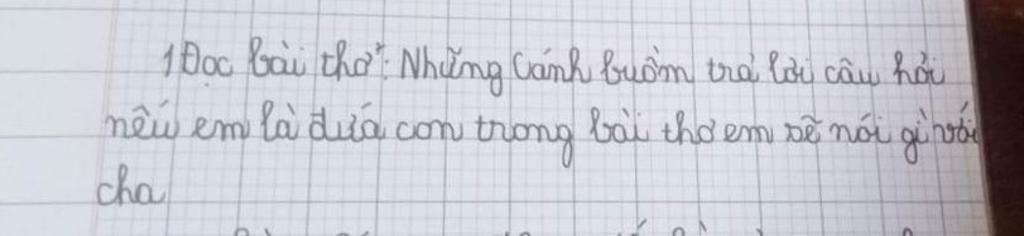 1 Đọc bài thơ: Những Cánh buồm trả lời câu hỏi
nếu em là đứa con trong bài thơ em sẽ nói gì với
cha